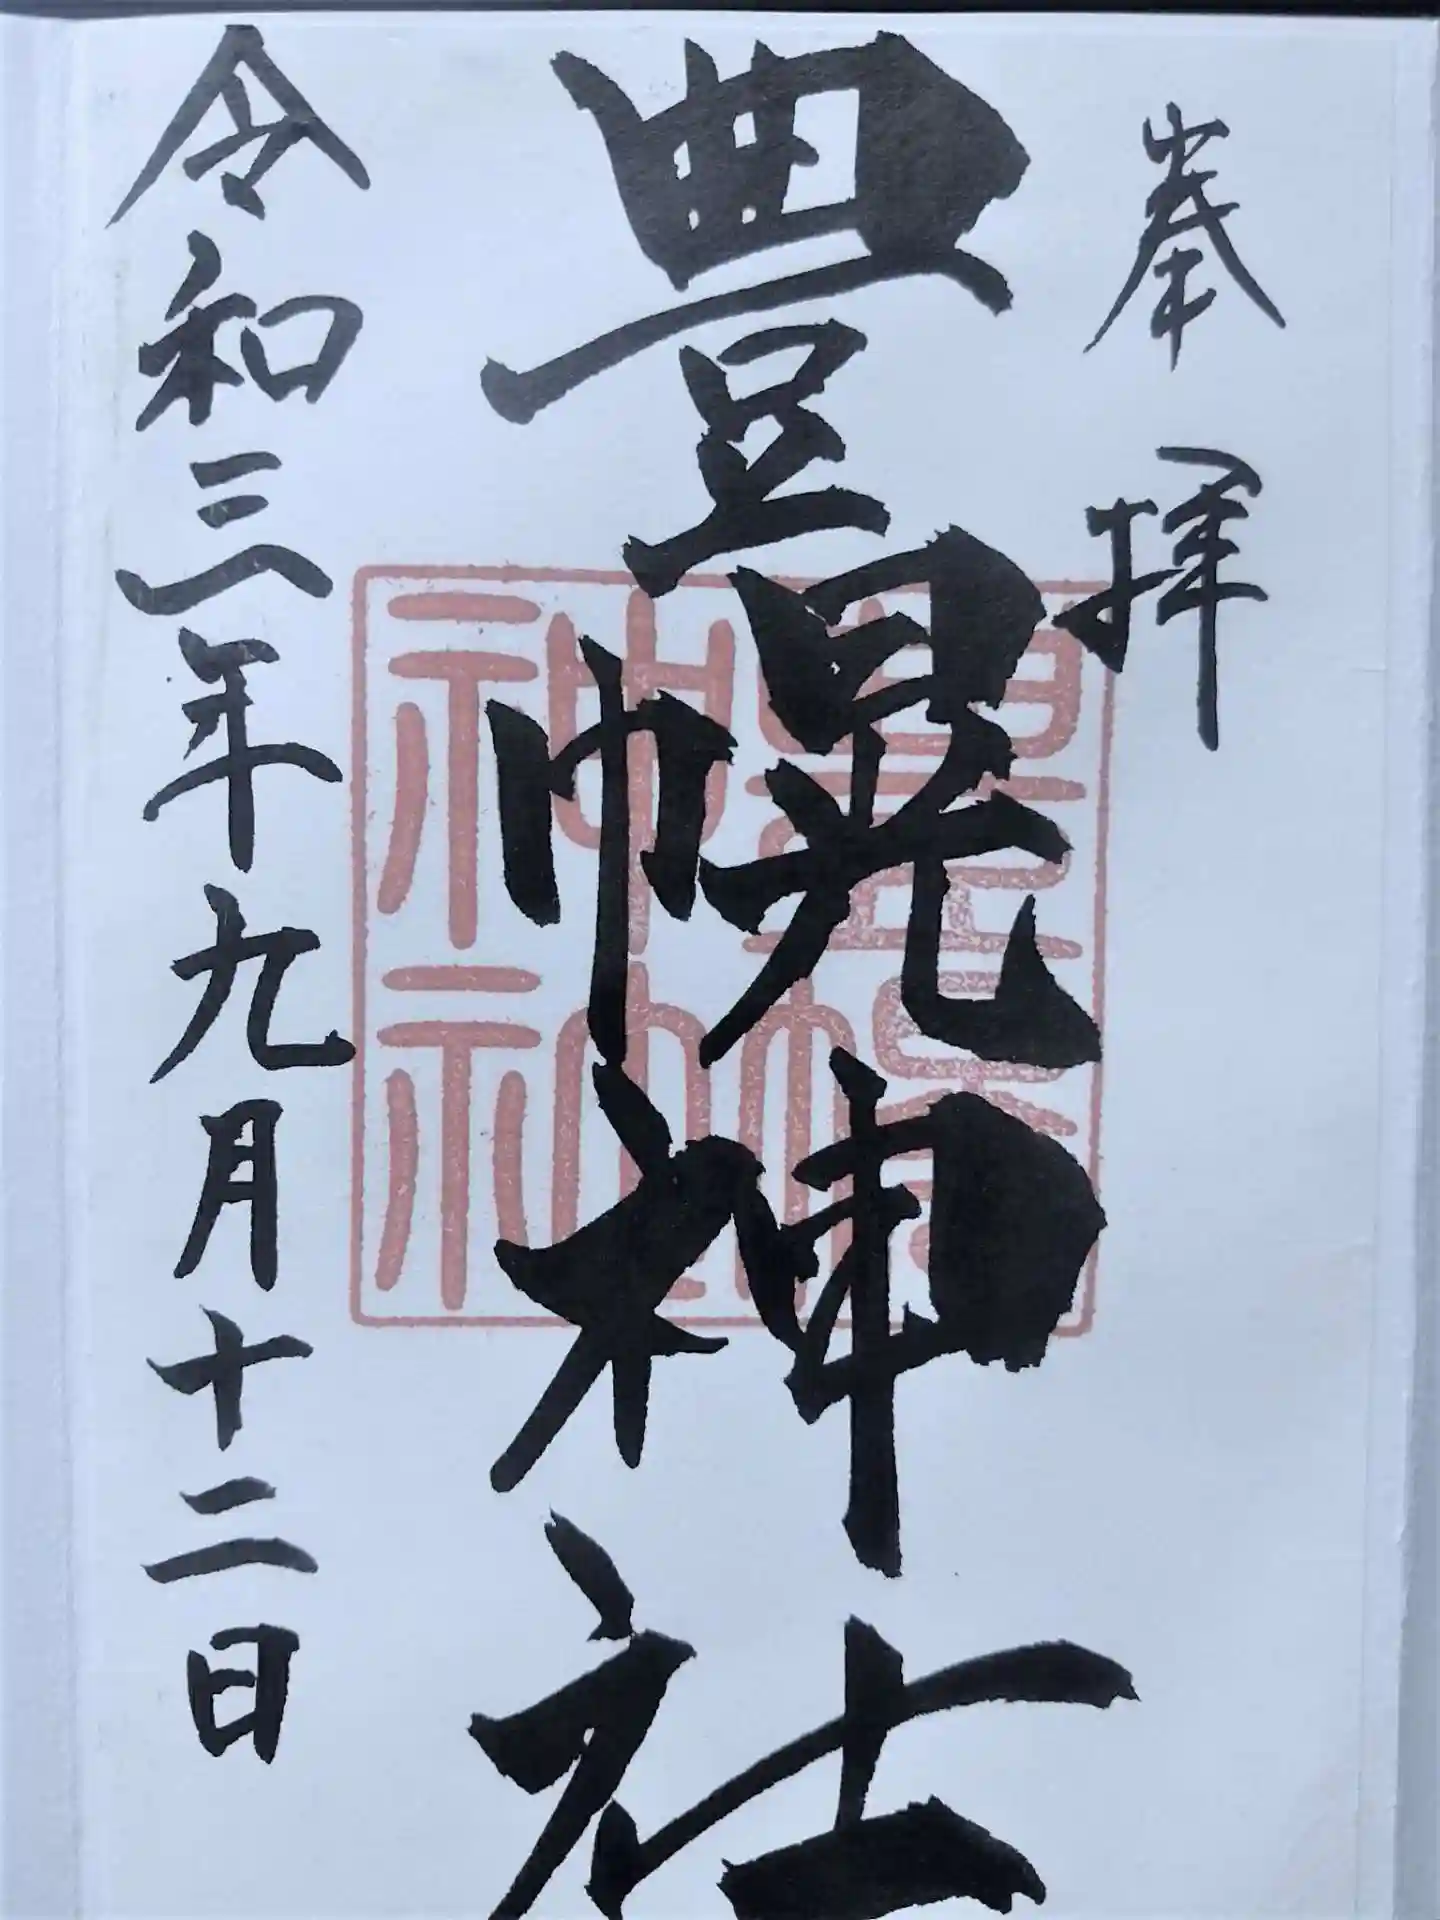 奉拝
豊幌神社
令和三年九月十二日
豊幌
神社